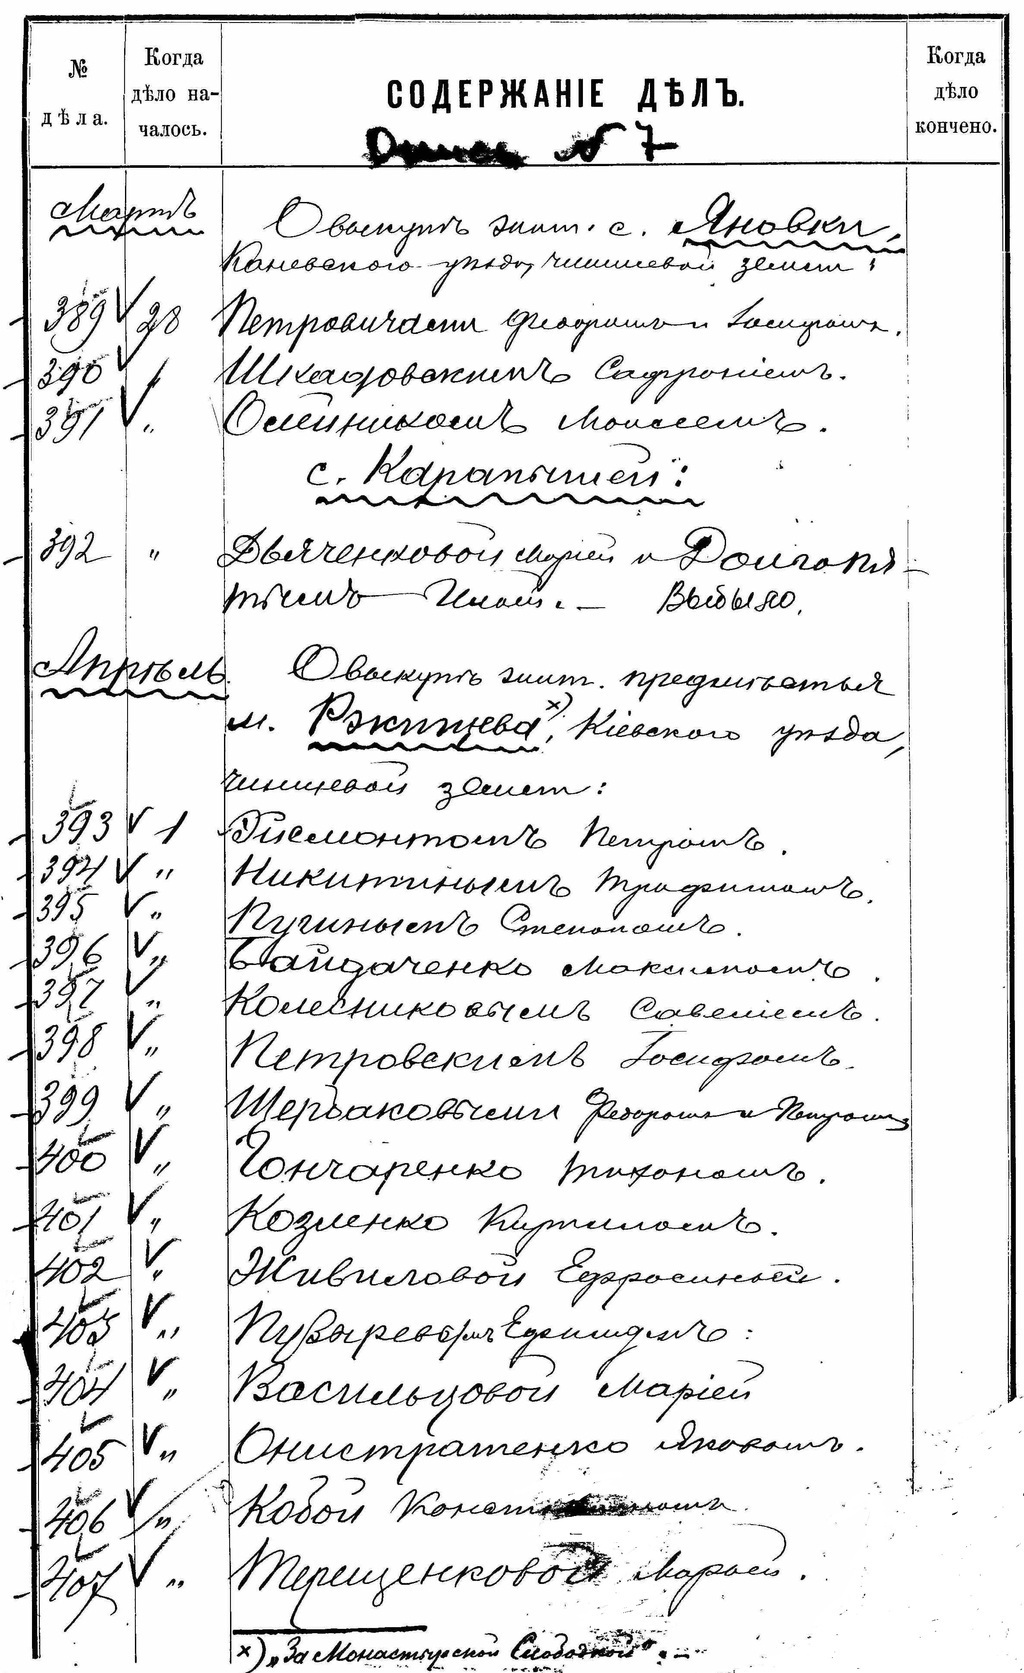 № дѣла.
Когда дѣло началось.
СОДЕРЖАНІЕ ДѢЛЪ.
Когда дѣло кончено.
Опись № 7
Мартъ О выкупѣ жит. с. Яновки,
Каневскаго уѣзда, чиншевой земли:
389 28 Петровичами Федоромъ и Іосифомъ.
390 „ Шкадовскимъ Сафроніемъ.
391 „ Олейникомъ Моисеемъ.
с. Карапышей:
392 „ Дьяченковой Маріей и Долгопя-
тымъ Иваномъ. — Выбыло.
Апрѣль. О выкупѣ жит. предмѣстья
м. Ржищева х), Кіевскаго уѣзда,
чиншевой земли:
393 1 Гисмонтомъ Петромъ.
394 „ Никитинымъ Трофимомъ.
395 „ Пугинымъ Степаномъ.
396 „ Байдаченко Максимомъ.
397 „ Колесниковымъ Савеліемъ.
398 „ Петровскимъ Іосифомъ.
399 „ Щербаковыми Федоромъ и Петромъ
400 „ Гончаренко Тихономъ.
401 „ Козленко Кириломъ.
402 „ Живиловой Ефросиньей.
403 „ Пузыревымъ
404 „ Васильцовой Маріей
405 „ Онистратенко Яковомъ.
406 „ Кобой Константиномъ
407 „ Терещенковой Маріей.
х) „За Монастырской Слободкой".